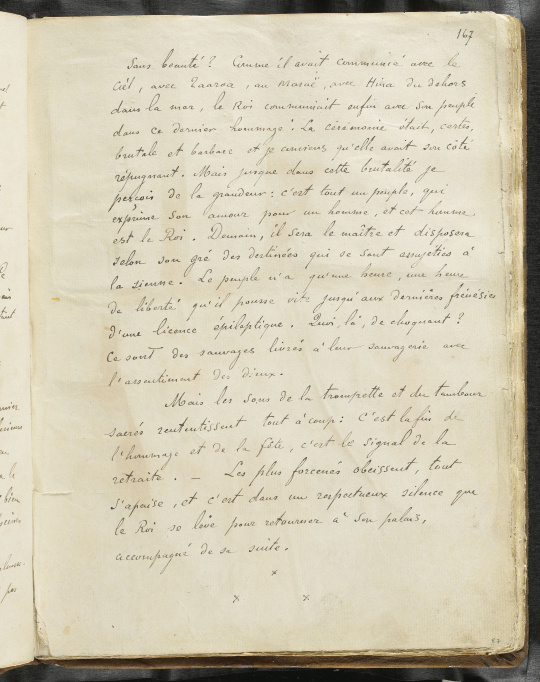 167
sans beauté? Comme il avait communié avec le
Ciel, avec Taaroa, au Maraë, avec Hina du dehors
dans la mer, le Roi communiait enfin avec son peuple
dans ce dernier hommage. La cérémonie était, certes,
brutale et barbare et je conviens qu'elle avait son côté
répugnant. Mais jusque dans cette brutalité je
perçois de la grandeur: c'est tout un peuple, qui
exprime son amour pour un homme, et cet homme
est le Roi. Demain, il sera le maître et disposera
selon son gré des destinées qui se sont assujeties à
la sienne. Le peuple n'a qu'une heure, une heure
de liberté qu'il pousse vite jusqu'aux dernières frénésies
d'une licence epileptique. Quoi, là, de choquant?
Ce sont des sauvages livrés à leur sauvagerie avec
l'assentiment des dieux.
Mais les sons de la trompette et du tambour
sacrés retentissent tout à coup: c'est la fin de
l'hommage et de la fête, c'est le signal de la
retraite. — Les plus forcenés obeissent, tout
s'apaise, et c'est dans un respectueux silence que
le Roi se lève pour retourner à son palais,
accompagné de sa suite.
x
x x